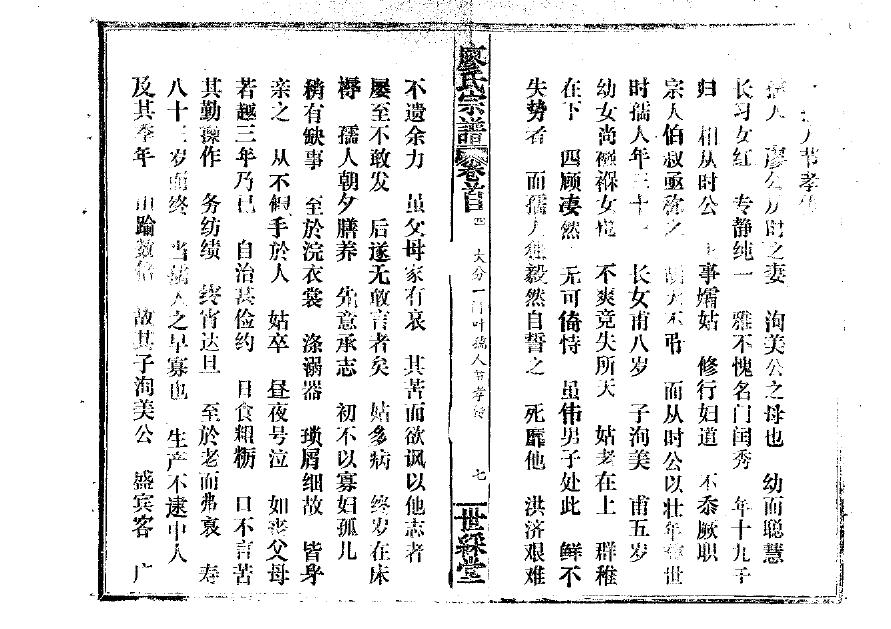 人节孝
孺人 廖公从时之妻 洵美公之母也 幼而聪慧
长习女红 专静纯一 雅不愧名门闺秀 年十九于
归 相从时公 上事孀姑 修行妇道 不忝厥职
宗人伯叔亟称之 胡天不吊 而从时公以壮年弃世
时孺人年三十一 长女甫八岁 子洵美 甫五岁
幼女尚襁褓女也 不爽竟失所天 姑老在上 群稚
在下 四顾凄然 无可倚恃 虽伟男子处此 鲜不
失势者 而孺人独毅然自誓之 死靡他 洪济艰难
廖氏宗谱 卷首 四 大分一门叶孺人节孝传 七 世䌽堂
不遗余力 虽父母家有哀 其苦而欲讽以他志者
屡至不敢发 后遂无敢言者矣 姑多病 终岁在床
褥 孺人朝夕膳养 先意承志 初不以寡妇孤儿
稍有缺事 至於浣衣裳 涤溺器 琐屑细故 皆身
亲之 从不假手於人 姑卒 昼夜号泣 如丧父母
若越三年乃已 自治甚俭约 日食粗粝 口不言苦
其勤操作 务纺绩 终宵达旦 至於老而弗衰 寿
八十三岁而终 当孺人之早寡也 生产不逮中人
及其季年 田踰数倍 故其子洵美公 盛宾客 广